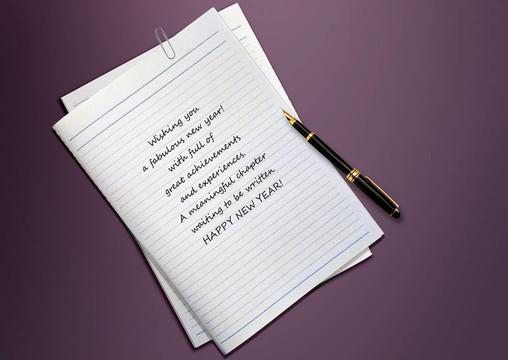 Wishing you
a fabulous new year!
with full of
great achievements
and experiences.
A meaningful chapter
waiting to be written
HAPPY NEW YEAR!